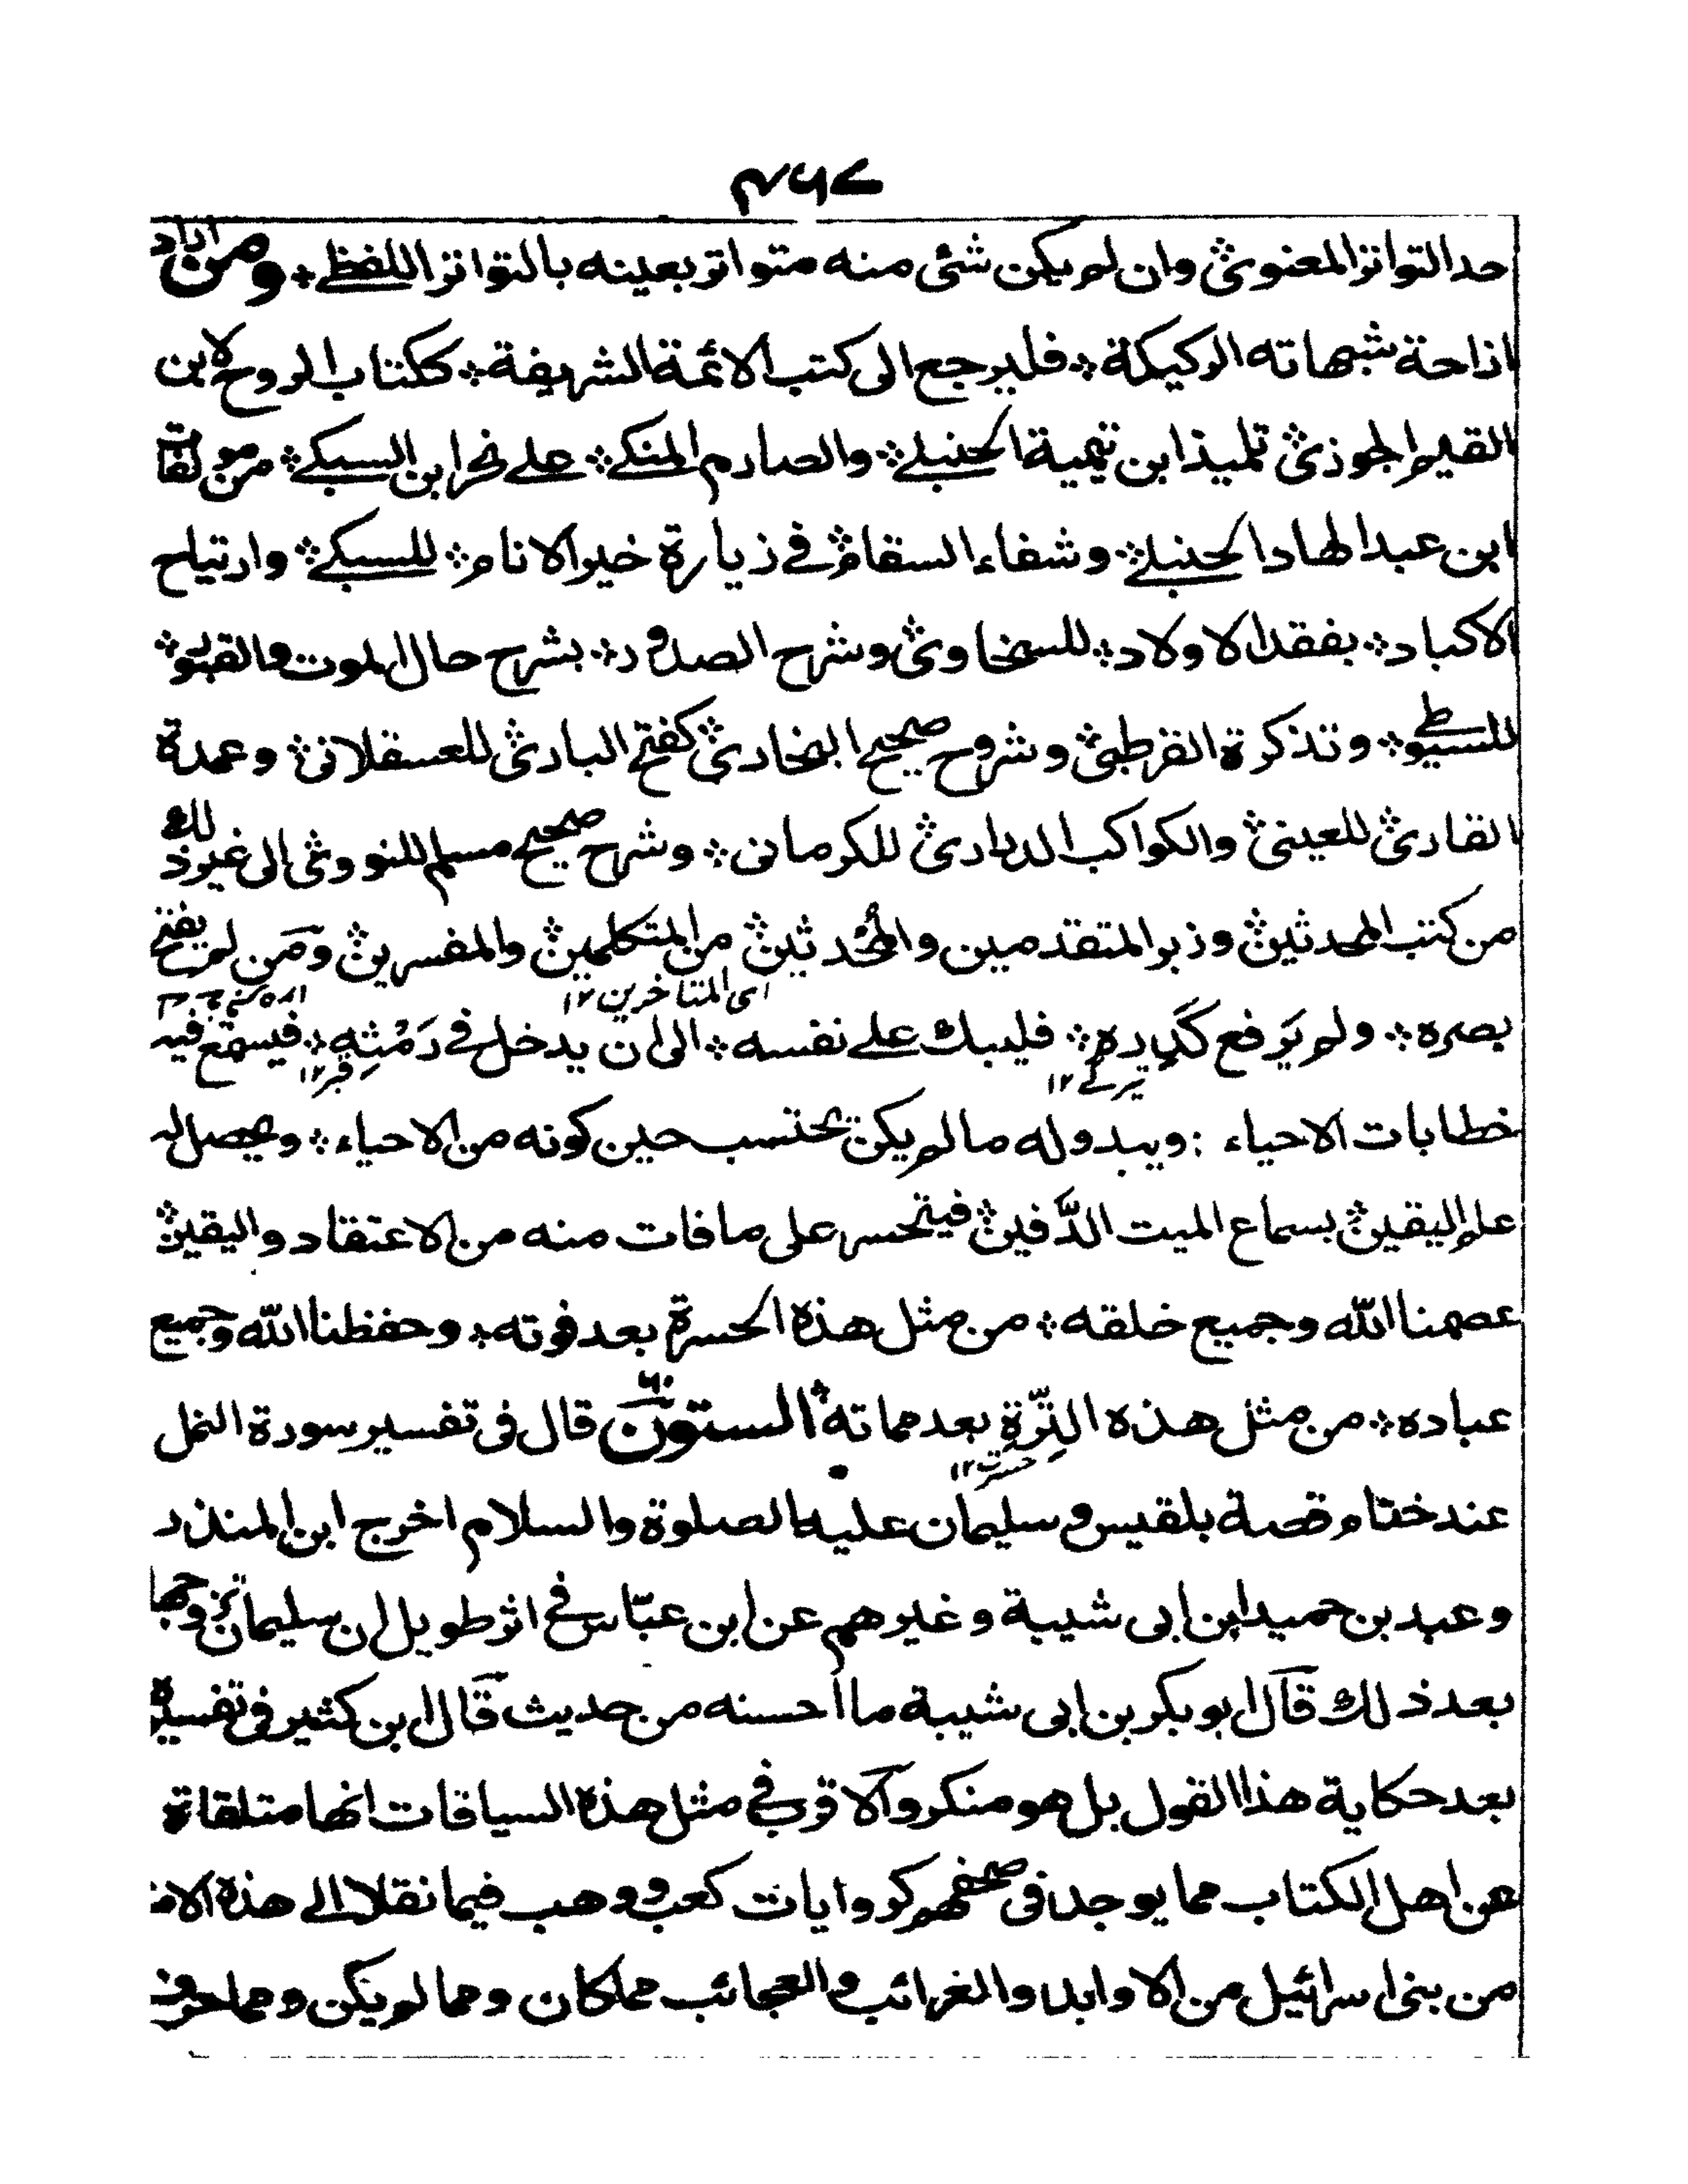 ۴۶۷
حد التواتر المعنوی؞ وان لم یکن شئی منه متواتر بعینه بالتواتر اللفظے؞ ومن اراد
ازاحة شبهاته الرکیکة؞ فلیرجع الی کتب الائمة الشریفة؞ ککتاب الروح لابن
القیم الجوزی؞ تلمیذ ابن تیمیة الحنبلے؞ والصارم المنکے؞ علے نحر ابن السبکے؞ من مؤلفات
ابن عبد الهاد الحنبلے؞ وشفاء السقام؞ فے زیارة خیر الانام؞ للسبکے؞ وارتیاح
الاکباد؞ بفقد الاولاد؞ للسخاوی؞ وشرح الصدور؞ بشرح حال الموت والقبور؞
للسیوطے؞ وتذکرة القرطبی؞ وشروح صحیح البخاری؞ کفتح الباری؞ للعسقلانی؞ وعمدة
القاری؞ للعینی؞ والکواکب الدراری؞ للکرمانی؞ وشرح صحیح مسلم للنووی؞ الی غیر ذلك
من کتب المحدثین؞ وزبر المتقدمین والمُحْدثین؞ من المتکلمین؞ والمفسرین؞ ومَن لم یفتح
ای المتاخرین ۱۲
بصره؞ ولم یَرفع کَدِرِه؞ فلیبك علے نفسه؞ الی ان یدخل فے رَمْثِهِ؞ فیسمع فیه
قبر ۱۲
خطابات الاحیاء : ویبدو له ما لم یکن یحتسب حین کونه من الاحیاء؞ ویحصل له
علم الیقین؞ بسماع المیت الدَّفین؞ فیتحسر علی ما فات منه من الاعتقاد والیقین؞
عصمنا الله وجمیع خلقه؞ من مثل هذه الحسرة بعد فوته؞ وحفظنا الله وجمیع
عباده؞ من مثل هذه التِّرَّةِ بعد مماته؞ الستون ۶۰ قال فی تفسیر سورة النمل
حسرت ۱۲
عند ختام قصة بلقیس و سلیمان علیه الصلوة والسلام اخرج ابن المنذر
وعبد بن حمید ابن ابی شیبة وغیرهم عن ابن عبّاس فی اثر طویل ان سلیمان تزوجها
بعد ذلك قال ابو بکر بن ابی شیبة ما أحسنه من حدیث قال ابن کثیر فی تفسیره
بعد حکایة هذا القول بل هو منکر والاقرب فی مثل هذه السیاقات انها متلقاة
عن اهل الکتاب مما یوجد فی صحفهم کروایات کعب ووهب فیما نقلا الے هذه الامة
من بنی اسرائیل من الاوابد والغرائب والعجائب مماکان ومما لم یکن ومما حرف